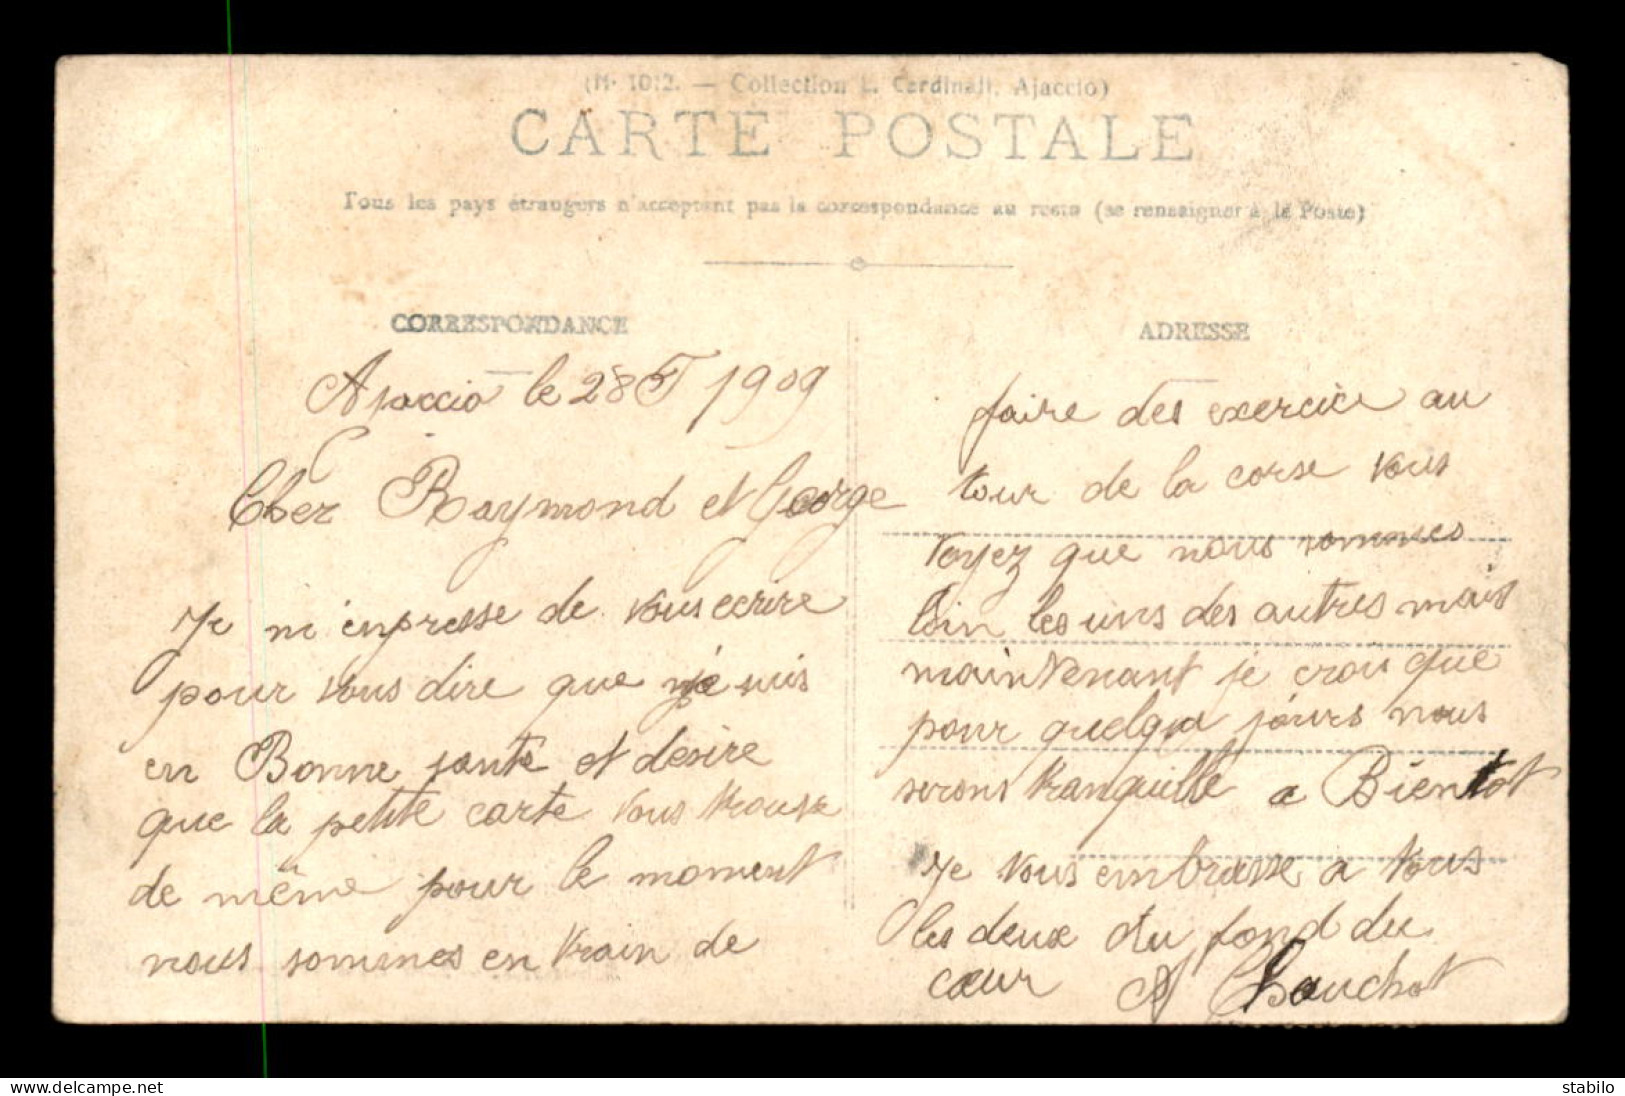 (N· 1012. — Collection L. Cardinali, Ajaccio)
CARTE POSTALE
Tous les pays étrangers n'acceptent pas la correspondance au recto (se renseigner à la Poste)
CORRESPONDANCE
Ajaccio le 28 1909
Cher Raymond et George
Je m'enpresse de vous ecrire
pour vous dire que je suis
en Bonne santé et désire
que la petite carte vous trouve
de même pour le moment
nous sommes en train de
ADRESSE
faire des exercice au
tour de la corse vous
voyez que nous sommes
loin les uns des autres mais
maintenant je croi que
pour quelque jours nous
serons tranquille a Bientot
Je vous embrasse a tous
les deux du fond du
cœur A Chauchot
delcampe.net
stabilo